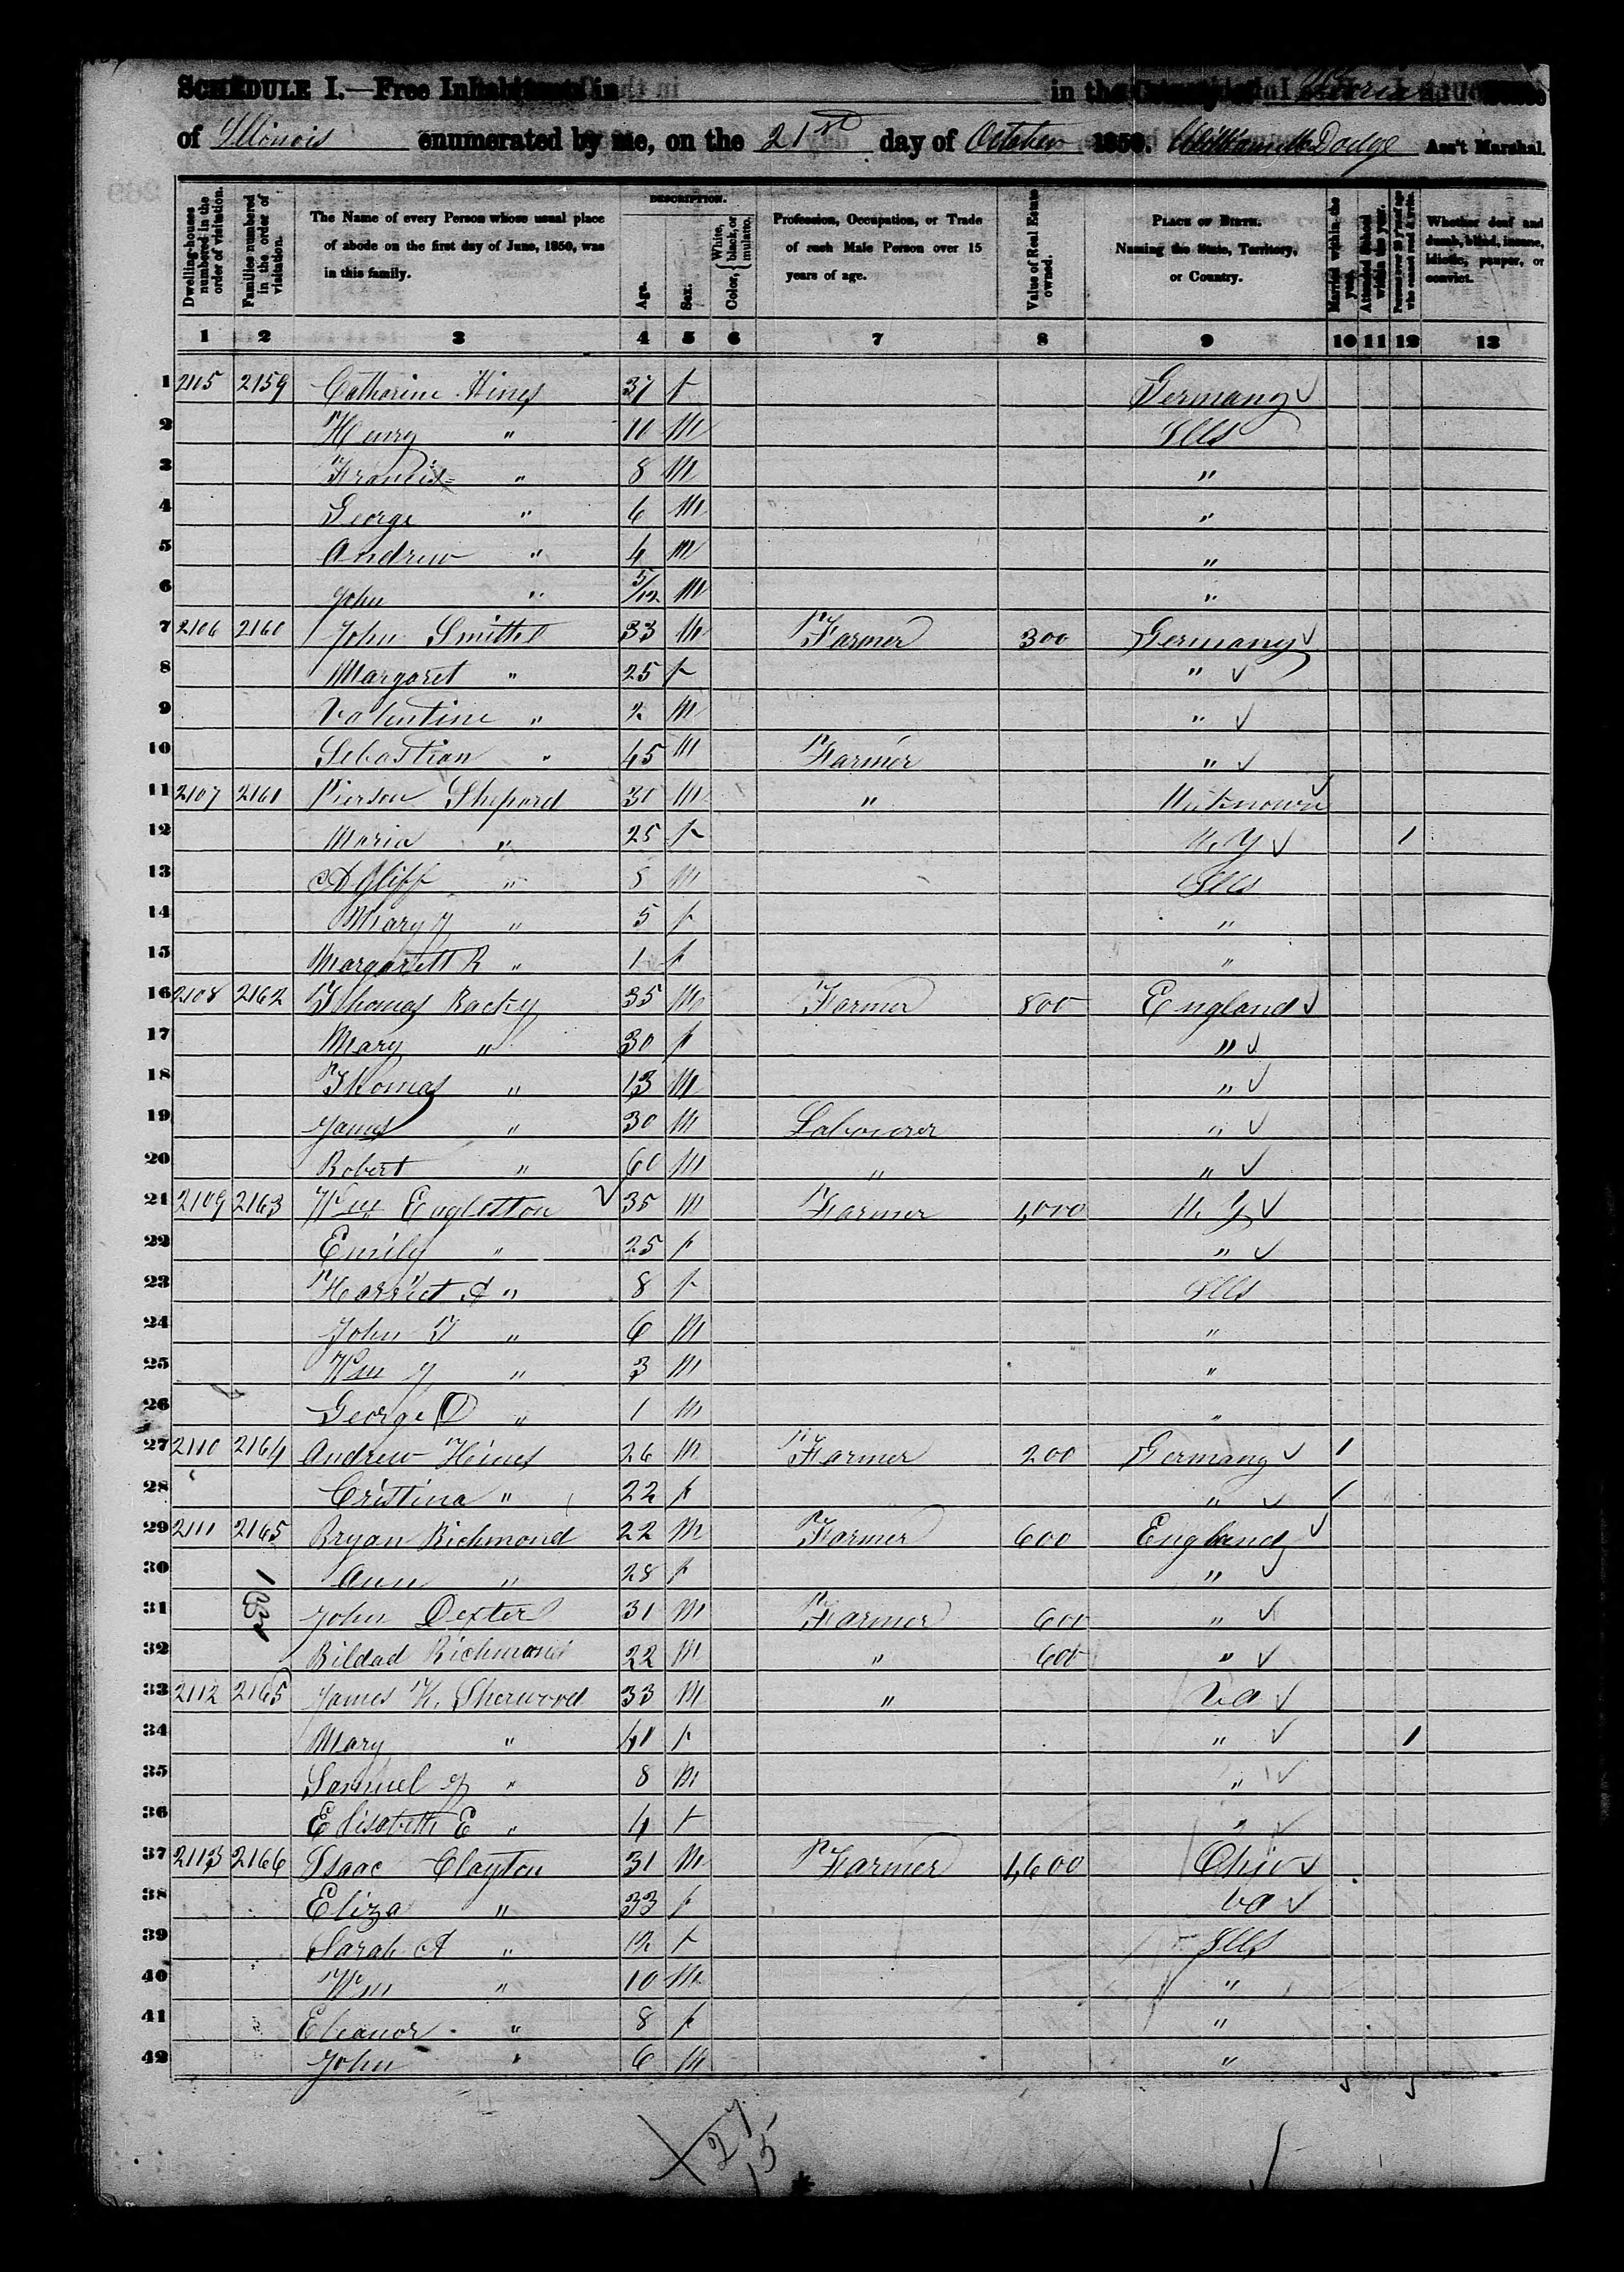 SCHEDULE I.—Free Inhabitants in in the County of Peoria State
of Illinois enumerated by me, on the 21st day of October 1850. William M Dodge Ass't Marshal.
Dwelling-houses numbered in the order of visitation.
Families numbered in the order of visitation.
The Name of every Person whose usual place of abode on the first day of June, 1850, was in this family.
DESCRIPTION.
Age.
Sex.
Color, { White, black, or mulatto.
Profession, Occupation, or Trade of each Male Person over 15 years of age.
Value of Real Estate owned.
PLACE OF BIRTH. Naming the State, Territory, or Country.
Married within the year.
Attended School within the year.
Persons over 20 y'rs of age who cannot read & write.
Whether deaf and dumb, blind, insane, idiotic, pauper, or convict.
1 2 3 4 5 6 7 8 9 10 11 12 13
1 2105 2159 Catharine Hines 37 f Germany ✓
2 Henry " 10 M Ills
3 Francis " 8 M "
4 George " 6 M "
5 Andrew " 4 M "
6 John " 5/12 M "
7 2106 2160 John Smith 33 M Farmer 300 Germany ✓
8 Margaret " 25 f " ✓
9 Valentine " 2 M " ✓
10 Sebastian " 45 M Farmer " ✓
11 2107 2161 Pierson Shepard 30 M " Unknown ✓
12 Maria " 25 f N.Y ✓ 1
13 " 8 M Ills
14 Mary J " 5 f "
15 Margarett R " 1 f "
16 2108 2162 Thomas Racky 35 M Farmer 800 England ✓
17 Mary " 30 f " ✓
18 Thomas " 13 M " ✓
19 James " 30 M Labourer " ✓
20 Robert " 60 M " " ✓
21 2109 2163 Wm Eagleston ✓ 35 M Farmer 1,000 N.Y ✓
22 Emily " 25 f " ✓
23 Harriet A " 8 f Ills
24 John T " 6 M "
25 Wm J " 3 M "
26 George D " 1 M "
27 2110 2164 Andrew Hines 26 M Farmer 200 Germany ✓ 1
28 Cristina " 22 f " ✓ 1
29 2111 2165 Bryan Richmond 22 M Farmer 600 England ✓
30 Ann " 28 f " ✓
31 John Dexter 31 M Farmer 600 " ✓
32 Bildad Richmond 22 M " 600 " ✓
33 2112 2165 James K. Sherwood 33 M " Va ✓
34 Mary " 41 f " ✓ 1
35 Samuel J " 8 M " ✓
36 Elisabeth E " 4 f " ✓
37 2113 2166 Isaac Clayton 31 M Farmer 1,600 Ohio ✓
38 Eliza " 33 f Va ✓
39 Sarah A " 12 f Ills
40 Wm " 10 M "
41 Eleanor " 8 f "
42 John " 6 M "
27
15